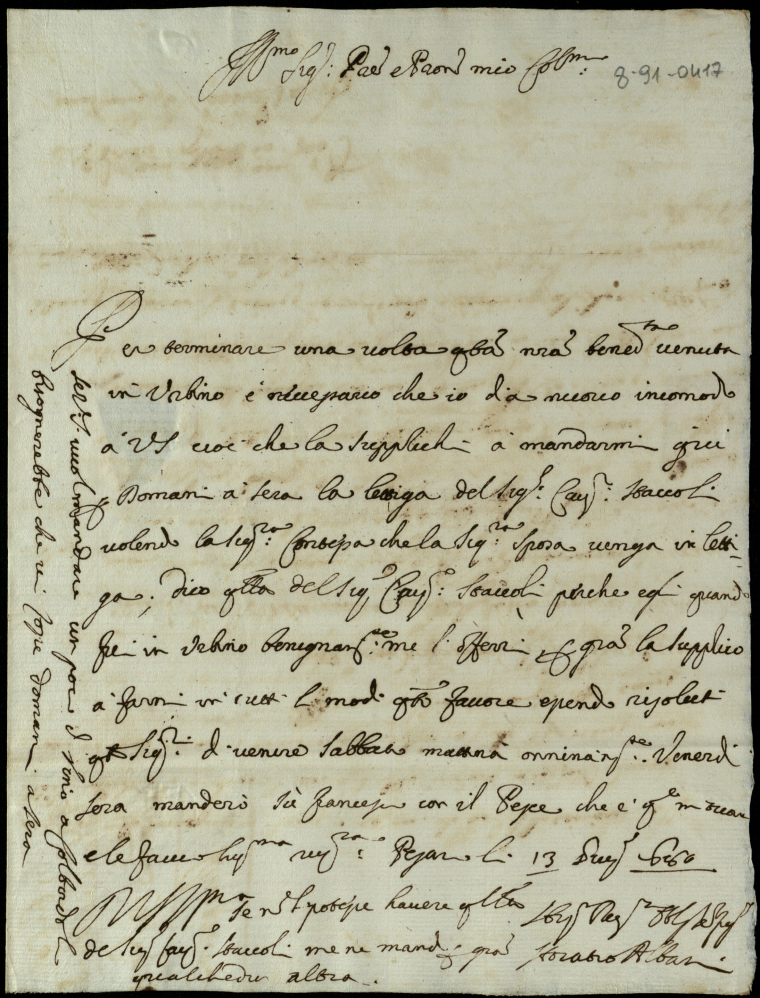 Illmo Sigr: Pne e Prone mio Colmo:
8-91-0417
Per terminare una volta qta nra bened.ta venuta
in Urbino è necessario che io dia nuovo incomodo
à VS cioè che la supplichi à mandarmi qui
Domani à sera la lettiga del Sigr: Cavr: Staccoli
volendo la Sigra: Contessa che la Sigra: sposa venga in letti-
ga; dico qlla del Sigr Cavr: Staccoli perche egli quando
fui in Urbino benignamte: me l'offerì, e la supplico
à farmi in tutti li modi qto favore essendo risoluti
qti Sigri: di venire Sabbato mattina onninamte: Venerdì
sera manderò sù francesco con il Pesce che è
e le faccio hummma revra: Pesaro li 13
VS Illma Se nò si potesse havere qlla
del Sigr Cavr: Staccoli me ne mandi
qualchedun altra.
Horatio Albani
Se V.S. vuol mandare un poco di vino a Colbordolo
bisognerebbe che vi fosse domani a sera